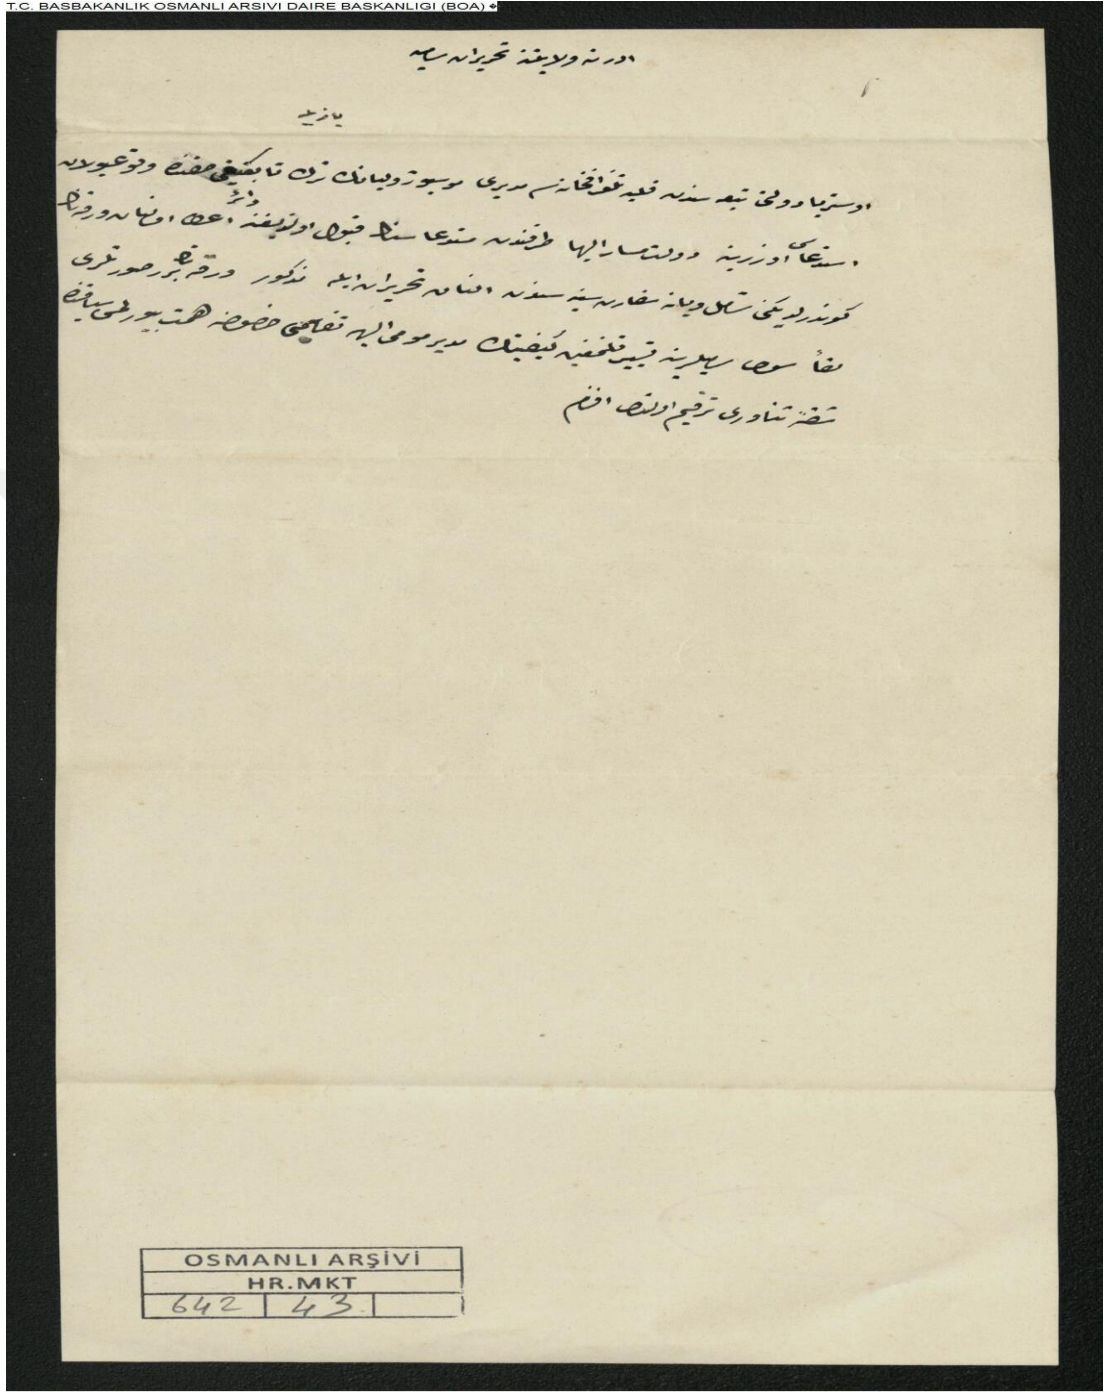 T.C. BASBAKANLIK OSMANLI ARSIVI DAIRE BASKANLIGI (BOA) �
ادرنه ولايتنه تحريرات ساميه
يازيله
اوستريا دولتى تبعه سندن فلبه تلغرافخانه سى مديرى موسيو ترك تابعيتى حقنده وقوعبولان
استدعاسى اوزرينه دولت مشار اليها طرفندن مستدعاسنك قبول اولنديغنه دائر اعطا اولنان ورقه نك
كوندرلديكنى شامل ويانه سفارت سنيه سندن النان تحريرات ايله مذكور ورقه نك برر صورتلرى
لفا سوى سهيلرينه تسيير قلنمغين كيفيتك مدير مومى اليه تفهيمى خصوصنه همت بيورملرى سياقنده
شقه ثناورى ترقيم اولندى افندم
OSMANLI ARŞİVİ
HR.MKT
642 43